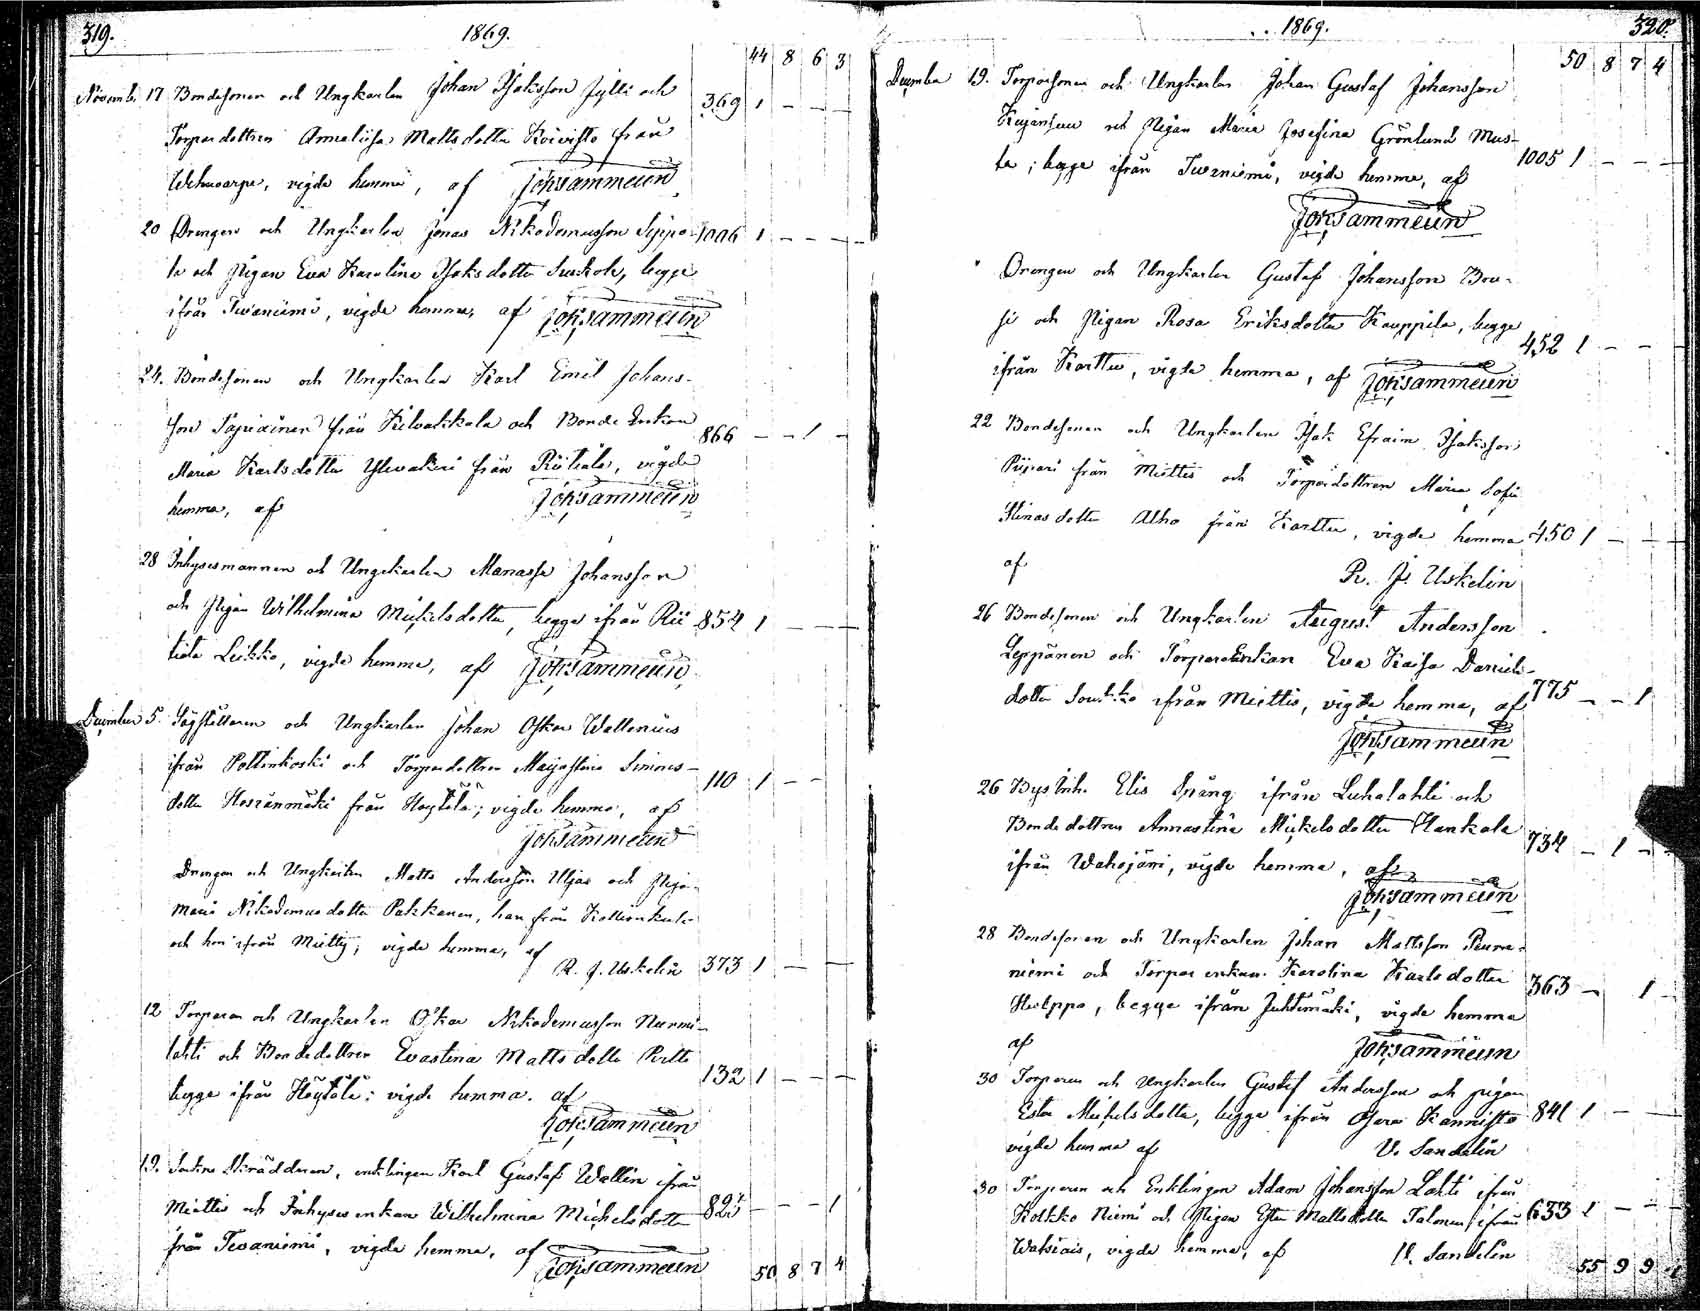 319. 1869.
44 8 6 3
Novemb. 17 Bondesonen och Ungkarlen Johan Isaksson Jylli och 369 1 - - -
Torpardottren Annaliisa Mattsdotter Koivisto från
vigde hemma, af JohSammelin
20 Drengen och Ungkarlen Jonas Nikodemusson Seppä- 1006 1 - - -
lä och Pigan Eva Karolina Isaksdotter begge
ifrån Tevaniemi, vigde hemma, af JohSammelin
24. Bondesonen och Ungkarlen Karl Emil Johans-
son Papiainen från Kilvakkala och Bonde Enkan 866 - - 1 -
Maria Karlsdotter från Riitiala, vigde
hemma, af JohSammelin
28 Inhysesmannen och Ungkarlen Manasse Johansson
och Pigan Wilhelmina Mickelsdotter, begge ifrån Rii- 854 1 - - -
tiala Leikko, vigde hemma, af JohSammelin
December 5. Sågställaren och Ungkarlen Johan Oskar Wallenius
ifrån Poltinkoski och Torpardottren Majastina Simons- 110 1 - -
dotter från Höytölä; vigde hemma, af
JohSammelin
Drengen och Ungkarlen Matts Andersson Uljas och Pigan
Maria Nikodemusdotter Pakkanen, han från
och hon ifrån Miettis; vigde hemma, af
R. J. Uskelin 373 1 - -
12 Torparen och Ungkarlen Oskar Nikodemusson Nurmi-
lahti och Bondedottren Evastina Mattsdotter Perttu
begge ifrån Höytölä; vigde hemma. af 132 1 - - -
JohSammelin
19. Skräddaren, enklingen Karl Gustaf Wallin ifrån
Miettis och Inhyses enkan Wilhelmina Michelsdotter 823 - - - 1
från Tevaniemi, vigde hemma, af
JohSammelin 50 8 7 4
1869. 320.
50 8 7 4
December 19. Torparsonen och Ungkarlen Johan Gustaf Johansson
Kujansuu och Pigan Maria Josefina Grönlund Mus-
ta; begge ifrån Tevaniemi, vigde hemma, af 1005 1 - - -
JohSammelin
" Drengen och Ungkarlen Gustaf Johansson Bou-
si och Pigan Rosa Eriksdotter Kauppila, begge
ifrån Karttu, vigde hemma, af JohSammelin 452 1 - - -
22 Bondesonen och Ungkarlen Isak Efraim Isaksson
Piipari från Miettis och Torpardottren Maria Sofia
Stinas dotter Alho från Karttu, vigde hemma 450 1 - - -
af R. J. Uskelin
26 Bondesonen och Ungkarlen August Andersson
Leppänen och Torpare Enkan Eva Kaisa Daniels-
dotter ifrån Miettis, vigde hemma, af 775 - - 1
JohSammelin
26 Bys Inh. Elis Spång ifrån Luhalahti och
Bondedottren Annastina Mickelsdotter Hankala 734 - 1 -
ifrån Wahojärvi, vigde hemma, af
JohSammelin
28 Bondesonen och Ungkarlen Johan Mattsson Peura-
niemi och Torpar enkan Karolina Karlsdotter 363 - 1 -
Hulppo, begge ifrån Juhtimäki, vigde hemma
af JohSammelin
30 Torparen och Ungkarlen Gustaf Andersson och pigan
Ester Mickelsdotter, begge ifrån Osara Kannisto 841 1 - -
vigde hemma af V. Sandelin
30 Torparen och Enklingen Adam Johansson Lahti ifrån
Kolkko Niemi och Pigan Ester Mattsdotter Talonen ifrån 633 1 - - -
Watsiais, vigde hemma, af V. Sandelin
55 9 9 4